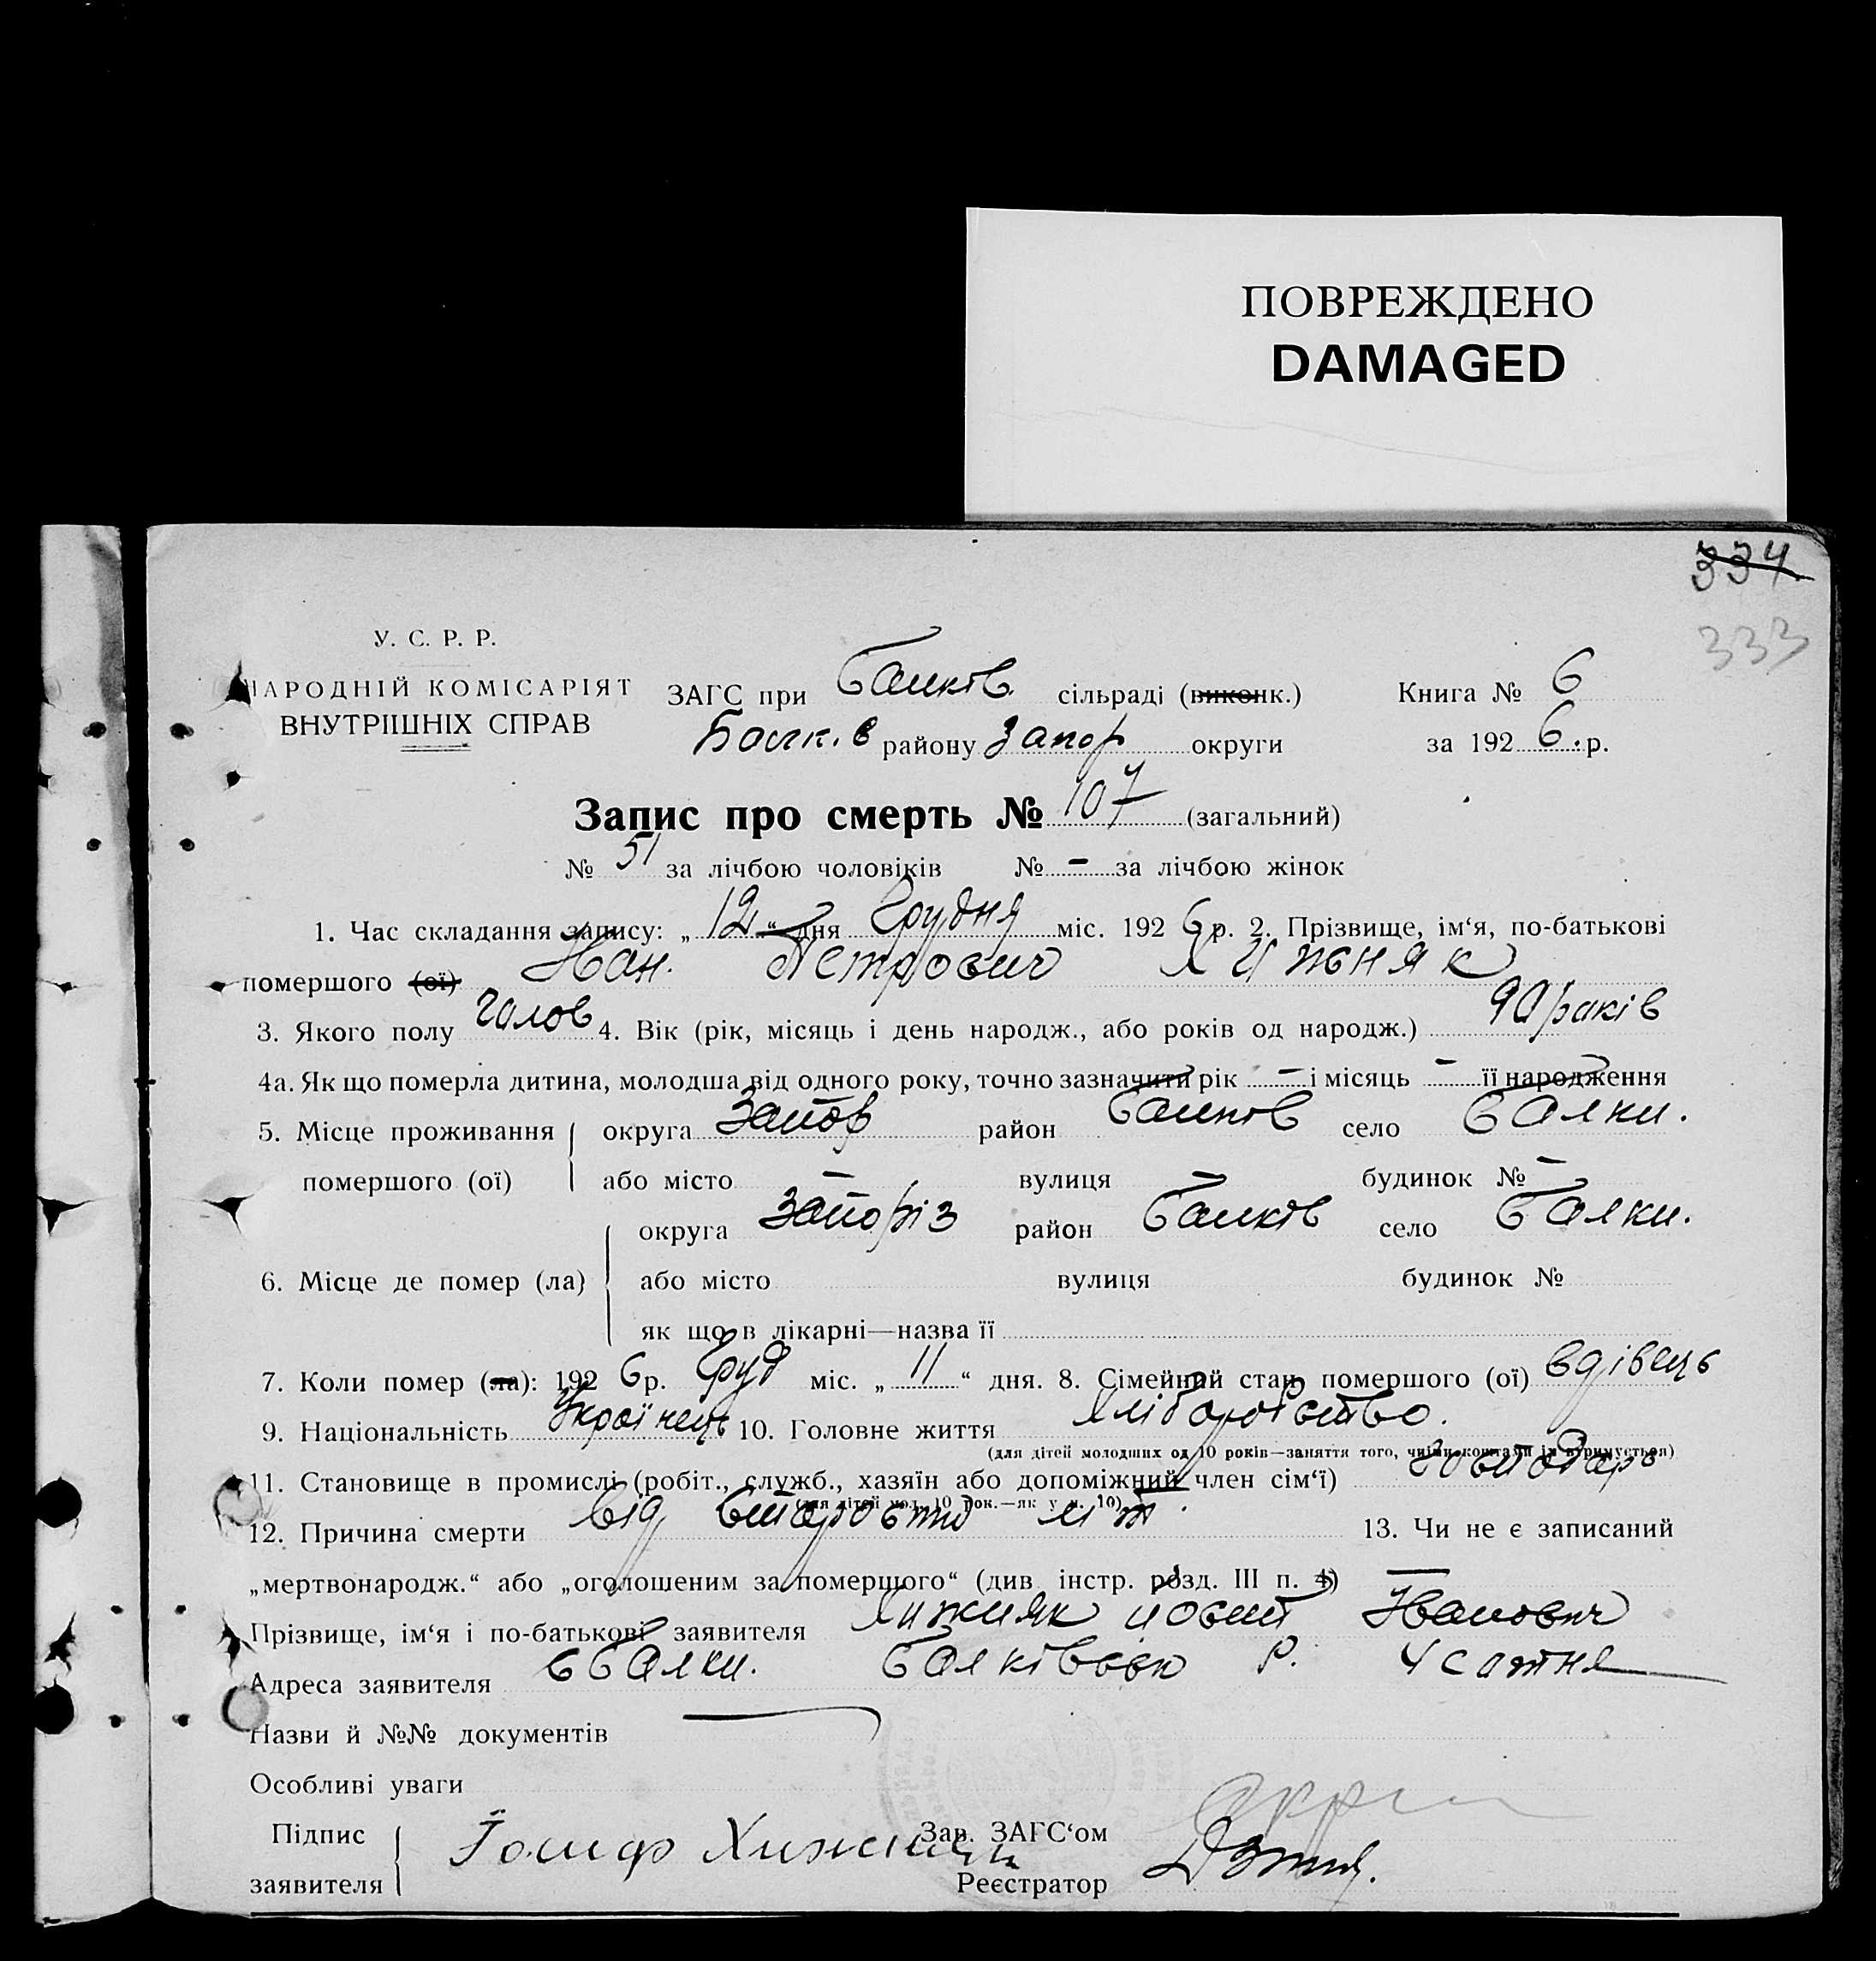 ПОВРЕЖДЕНО
DAMAGED
334
333
У. С. Р. Р.
НАРОДНІЙ КОМІСАРІЯТ
ВНУТРІШНІХ СПРАВ
ЗАГС при Балків. сільраді (виконк.) Книга № 6
Балк.в району Запор округи за 192 6.р.
Запис про смерть № 107 (загальний)
№ 51 за лічбою чоловіків №-за лічбою жінок
1. Час складання запису: „12“ дня Грудня міс. 192 6 р. 2. Прізвище, ім‘я, по-батькові
помершого (ої) Йван. Петрович Хижняк
3. Якого полу Чолов 4. Вік (рік, місяць і день народж., або років од народж.) 90 років
4а. Як що померла дитина, молодша від одного року, точно зазначити рік - і місяць - її народження
5. Місце проживання округа Запор район Балков село Балки.
помершого (ої) або місто - вулиця - будинок № -
округа Запоріз район Балков село Балки.
6. Місце де помер (ла) або місто вулиця будинок №
як що в лікарні—назва її
7. Коли помер (ла): 192 6 р. Груд міс. „11“ дня. 8. Сімейний стан помершого (ої) вдівець
9. Національність Українець 10. Головне життя Хліборобство.
(для дітей молодших од 10 років—заняття того, чиїми коштами їх втримується)
11. Становище в промислі (робіт., служб., хазяїн або допоміжний член сім‘ї)
(для дітей мол. 10 рок.—як у п. 10)
12. Причина смерти від старости літ. 13. Чи не є записаний
„мертвонародж.“ або „оголошеним за помершого“ (див. інстр. розд. III п. 4) —
Прізвище, ім‘я і по-батькові заявителя Хижняк Йосип Иванович
Адреса заявителя с Балки. Балківсск Р. 4 сотня
Назви й №№ документів
Особливі уваги
Підпис Іосиф Хижняк Зав. ЗАГС‘ом
заявителя Реєстратор